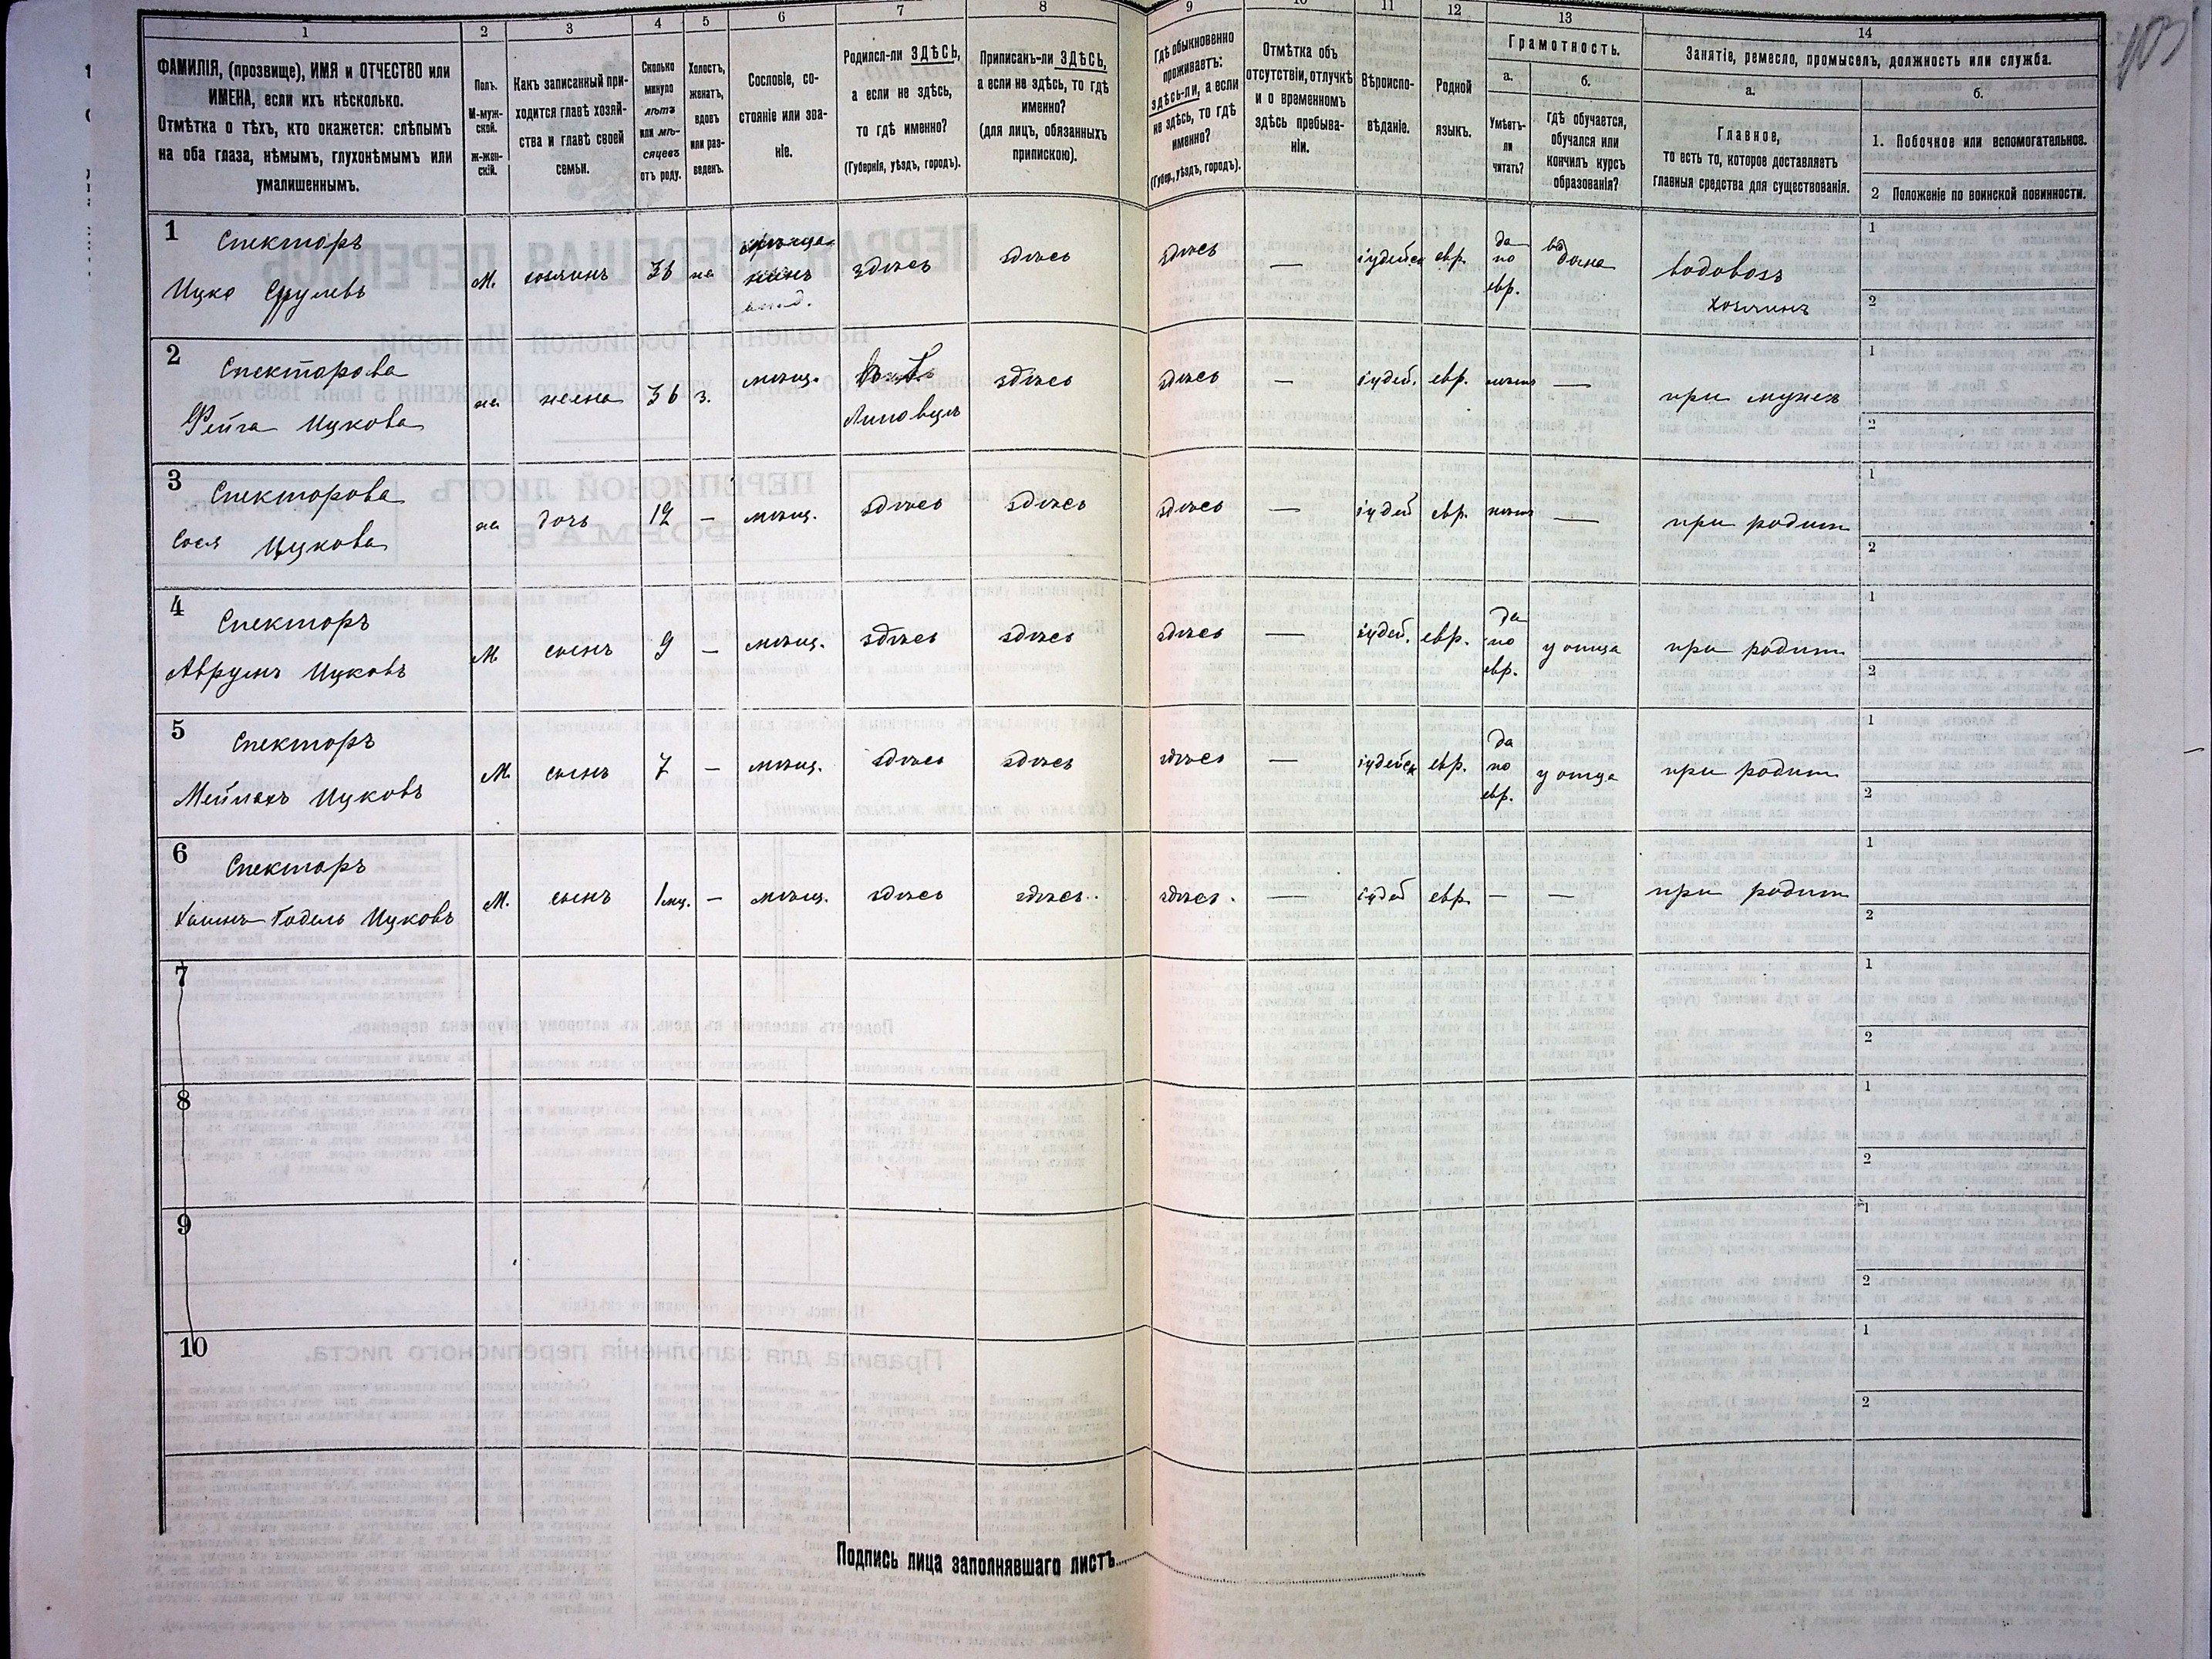 1 2 3 4 5 6 7 8 9 10 11 12 13 14
ФАМИЛІЯ, (прозвище), ИМЯ и ОТЧЕСТВО или
ИМЕНА, если ихъ нѣсколько.
Отмѣтка о тѣхъ, кто окажется: слѣпымъ
на оба глаза, нѣмымъ, глухонѣмымъ или
умалишеннымъ.
Полъ.
М-муж-
ской.
Ж-жен-
скій.
Какъ записанный при-
ходится главѣ хозяй-
ства и главѣ своей
семьи.
Сколько
минуло
лѣтъ
или мѣ-
сяцевъ
отъ роду.
Холостъ,
женатъ,
вдовъ
или раз-
веденъ.
Сословіе, со-
стояніе или зва-
ніе.
Родился-ли ЗДѢСЬ,
а если не здѣсь,
то гдѣ именно?
(Губернія, уѣздъ, городъ).
Приписанъ-ли ЗДѢСЬ,
а если не здѣсь, то гдѣ
именно?
(для лицъ, обязанныхъ
припискою).
Гдѣ обыкновенно
проживаетъ:
здѣсь-ли, а если
не здѣсь, то гдѣ
именно?
(Губер., уѣздъ, городъ).
Отмѣтка объ
отсутствіи, отлучкѣ
и о временномъ
здѣсь пребыва-
ніи.
Вѣроиспо-
вѣданіе.
Родной
языкъ.
Грамотность.
а.
Умѣетъ-
ли
читать?
б.
гдѣ обучается,
обучался или
кончилъ курсъ
образованія?
Занятіе, ремесло, промыселъ, должность или служба.
а.
Главное,
то есть то, которое доставляетъ
главныя средства для существованія.
б.
1. Побочное или вспомогательное.
2 Положеніе по воинской повинности.
1 Спекторъ
Ицко Сруловъ
М. хозяинъ 36 же здѣсь здѣсь здѣсь — іудейск евр.
да
по
евр.
водовозъ
хозяинъ
1
2
2 Спекторова
Фейга Ицкова
же жена 36 з. мѣщ.
Липовецъ
здѣсь здѣсь — іудей. евр. нѣтъ — при мужѣ
1
2
3 Спекторова
Сося Ицкова
же дочь 12 — мѣщ. здѣсь здѣсь здѣсь — іудей евр. нѣтъ — при родит
1
2
4 Спекторъ
Аврумъ Ицковъ
М сынъ 9 — мѣщ. здѣсь здѣсь здѣсь — іудей. евр.
да
по
евр.
у отца при родит
1
2
5 Спекторъ
Мейлахъ Ицковъ
М. сынъ 7 — мѣщ. здѣсь здѣсь здѣсь — іудейск евр.
да
по
евр.
у отца при родит
1
2
6 Спекторъ
Хаимъ Годель Ицковъ
М. сынъ 1 мц. — мѣщ. здѣсь здѣсь. здѣсь. — іудей евр. — — при родит
1
2
7
1
2
8
1
2
9
1
2
10
1
2
Подпись лица заполнявшаго листъ